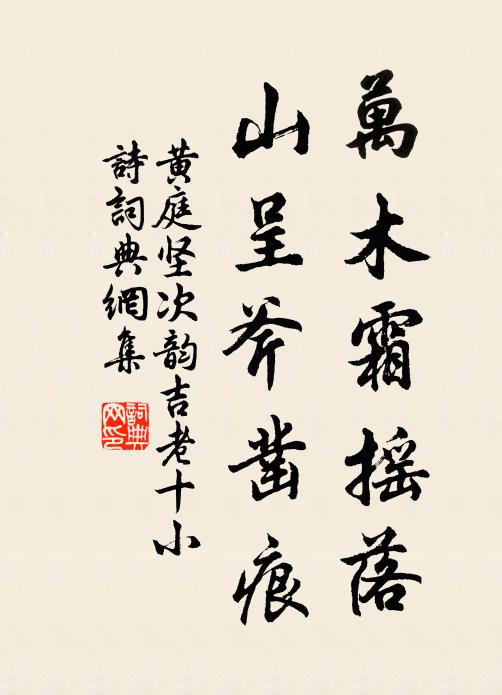 萬木霜摇落
山呈斧凿痕
黄庭坚次韵吉老十小
詩詞典網集
詞典
网印